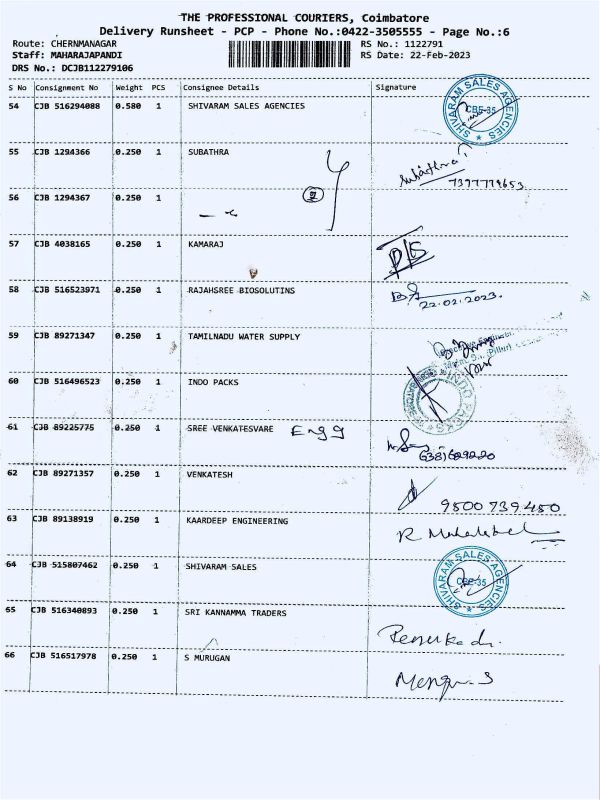 THE PROFESSIONAL COURIERS, Coimbatore
Delivery Runsheet - PCP - Phone No.:0422-3505555 - Page No.:6
Route: CHERNMANAGAR
RS No.: 1122791
Staff: MAHARAJAPANDI
RS Date: 22-Feb-2023
DRS No.: DCJB112279106
S No Consignment No Weight PCS Consignee Details Signature
54 CJB 516294088 0.580 1 SHIVARAM SALES AGENCIES
SHIVARAM SALES AGENCIES CBE-35
55 CJB 1294366 0.250 1 SUBATHRA
Subathra
56 CJB 1294367 0.250 1
57 CJB 4038165 0.250 1 KAMARAJ
58 CJB 516523971 0.250 1 RAJAHSREE BIOSOLUTINS
22.02.2023.
59 CJB 89271347 0.250 1 TAMILNADU WATER SUPPLY
60 CJB 516496523 0.250 1 INDO PACKS
INDO PACKS
61 CJB 89225775 0.250 1 SREE VENKATESVARE Engg
62 CJB 89271357 0.250 1 VENKATESH
9500739450
63 CJB 89138919 0.250 1 KAARDEEP ENGINEERING
64 CJB 515807462 0.250 1 SHIVARAM SALES
SHIVARAM SALES AGENCIES CBE-35
65 CJB 516340893 0.250 1 SRI KANNAMMA TRADERS
66 CJB 516517978 0.250 1 S MURUGAN